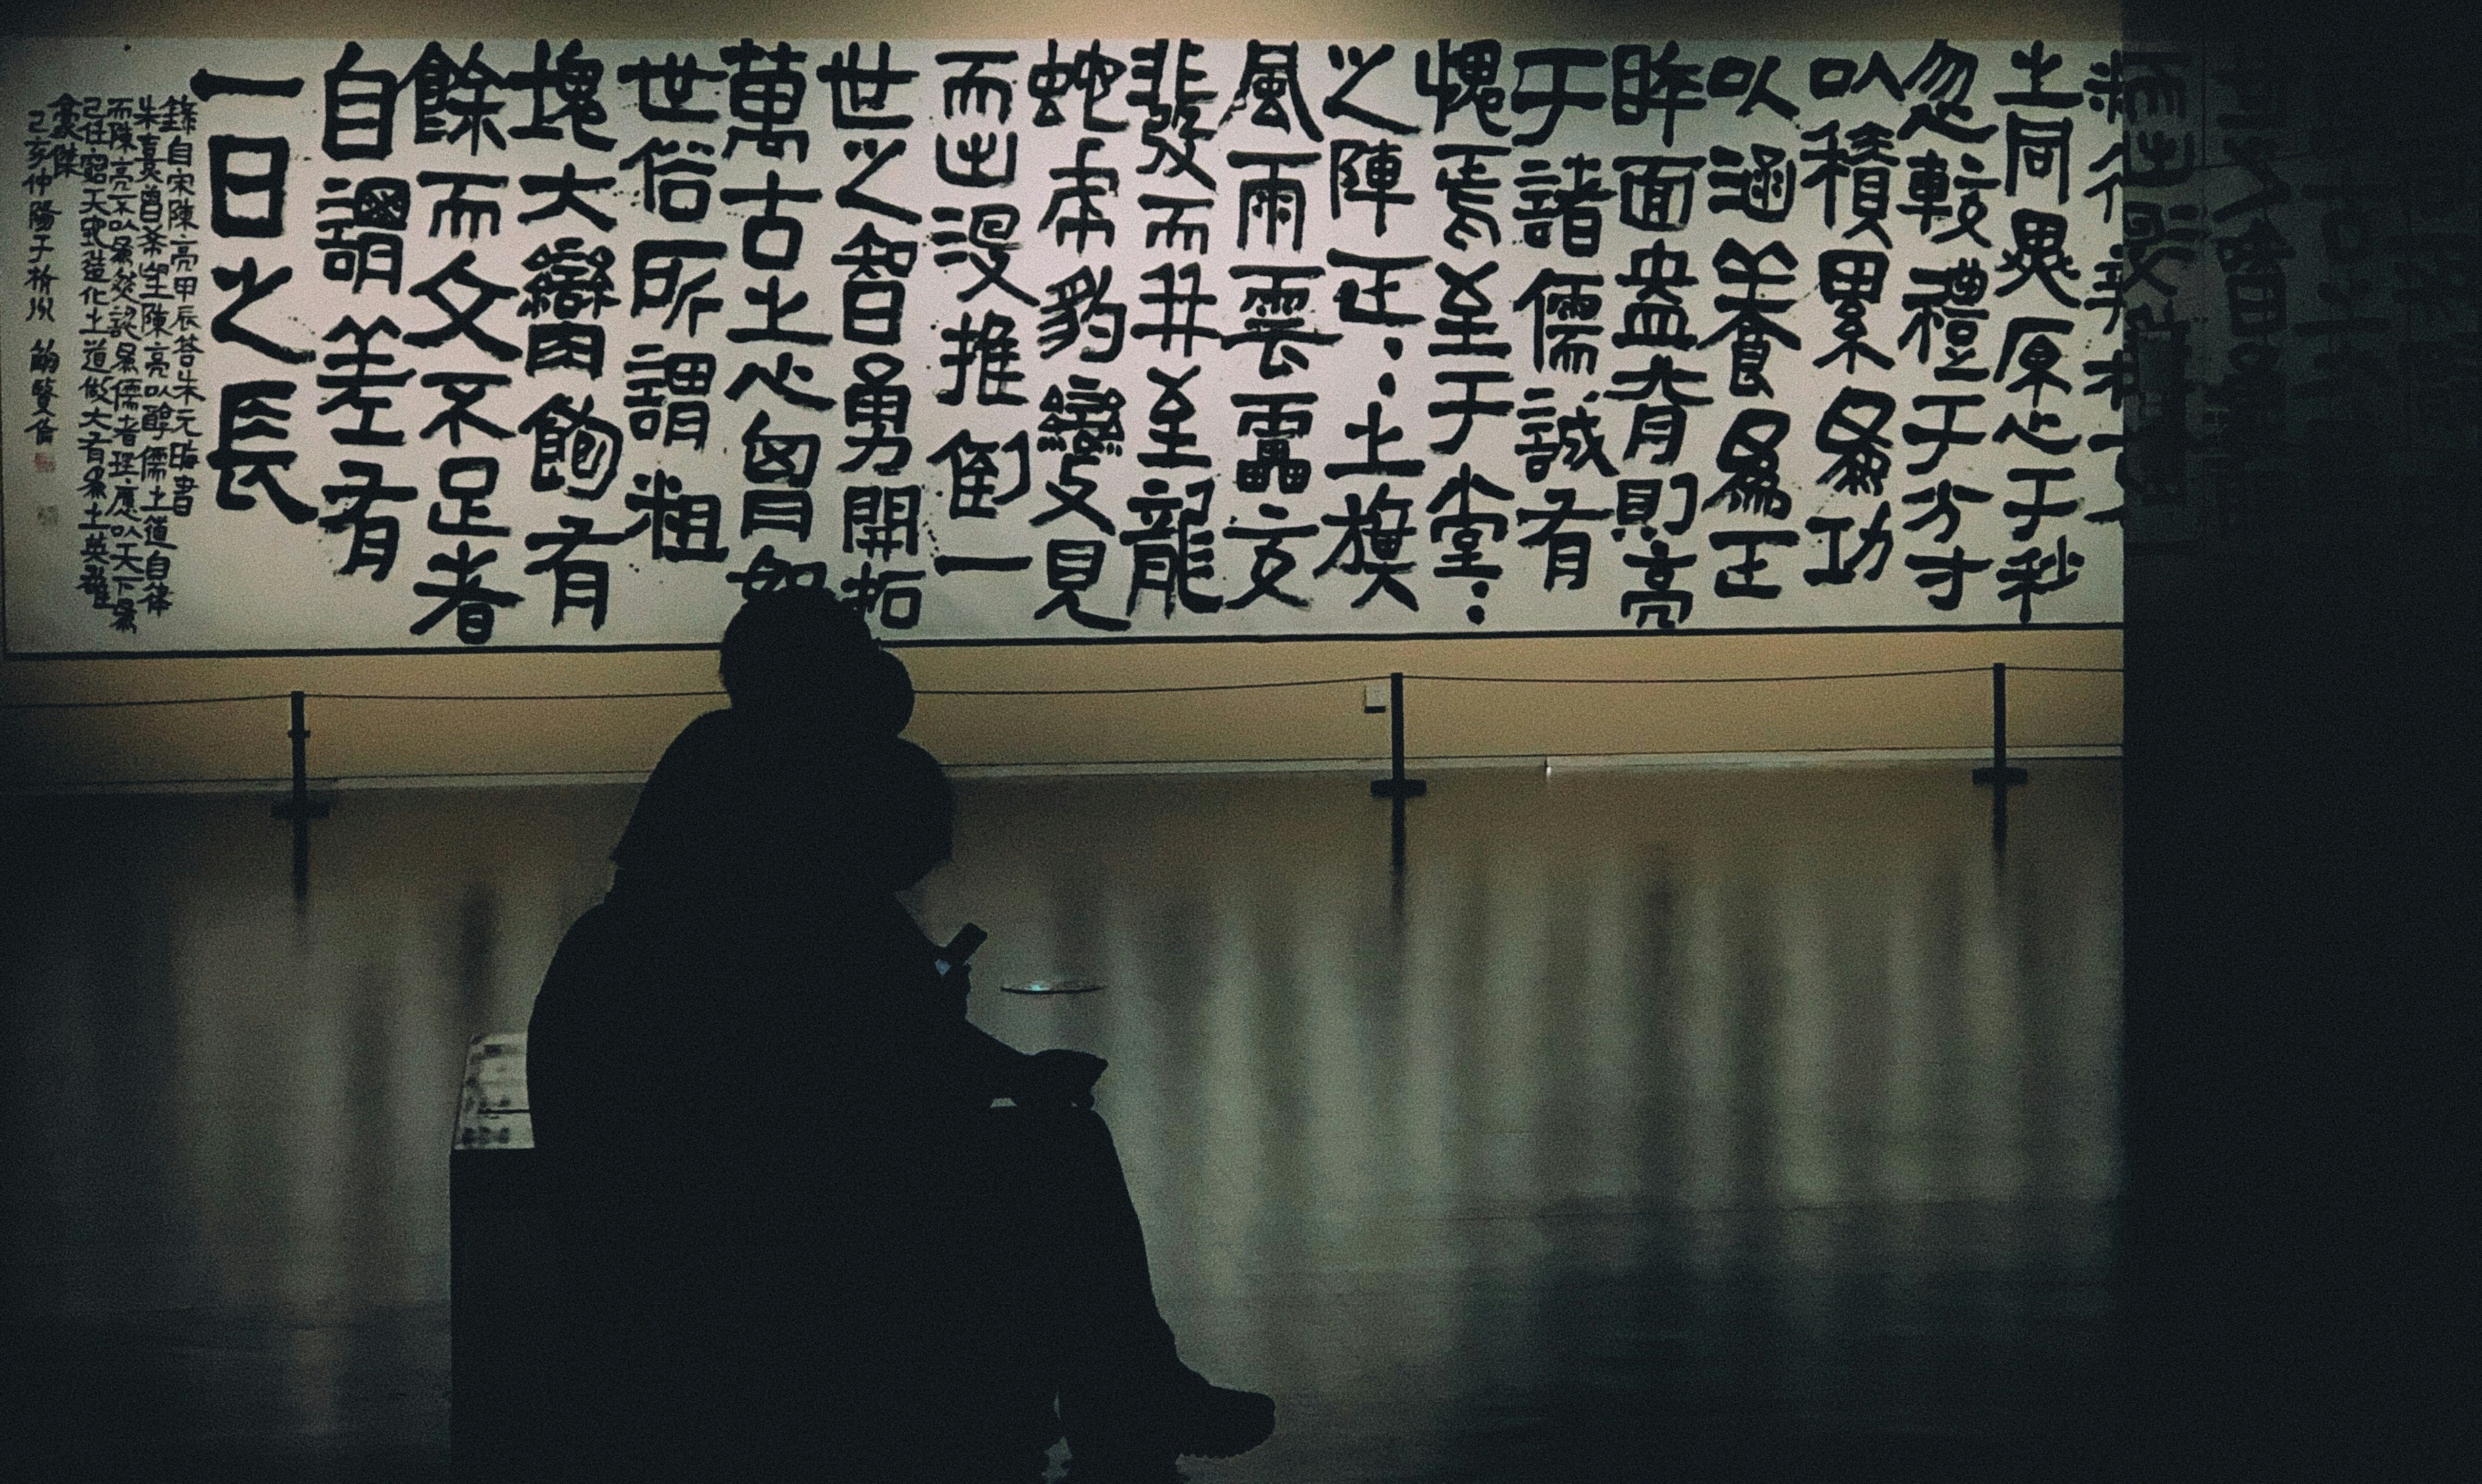 之同異原心于秒
忽較禮于方寸
以積累爲功
以涵養爲正
眸面盎背則亮
于諸儒誠有
愧焉至于堂:
之陣正:之旗
風雨雲靁交
發而并至龍
蛇虎豹變見
而出没推倒一
世之智勇開拓
萬古之心胷如
世俗所謂粗
塊大臠飽有
餘而文不足者
自謂差有
一日之長
錄自宋陳亮甲辰答朱元晦書
朱熹曾希望陳亮以醇儒之道自律
而陳亮不以爲然認爲儒者理應以天下爲
己任窮天地造化之道做大有爲之英雄
豪傑
己亥仲陽于杭州 鮑賢倫